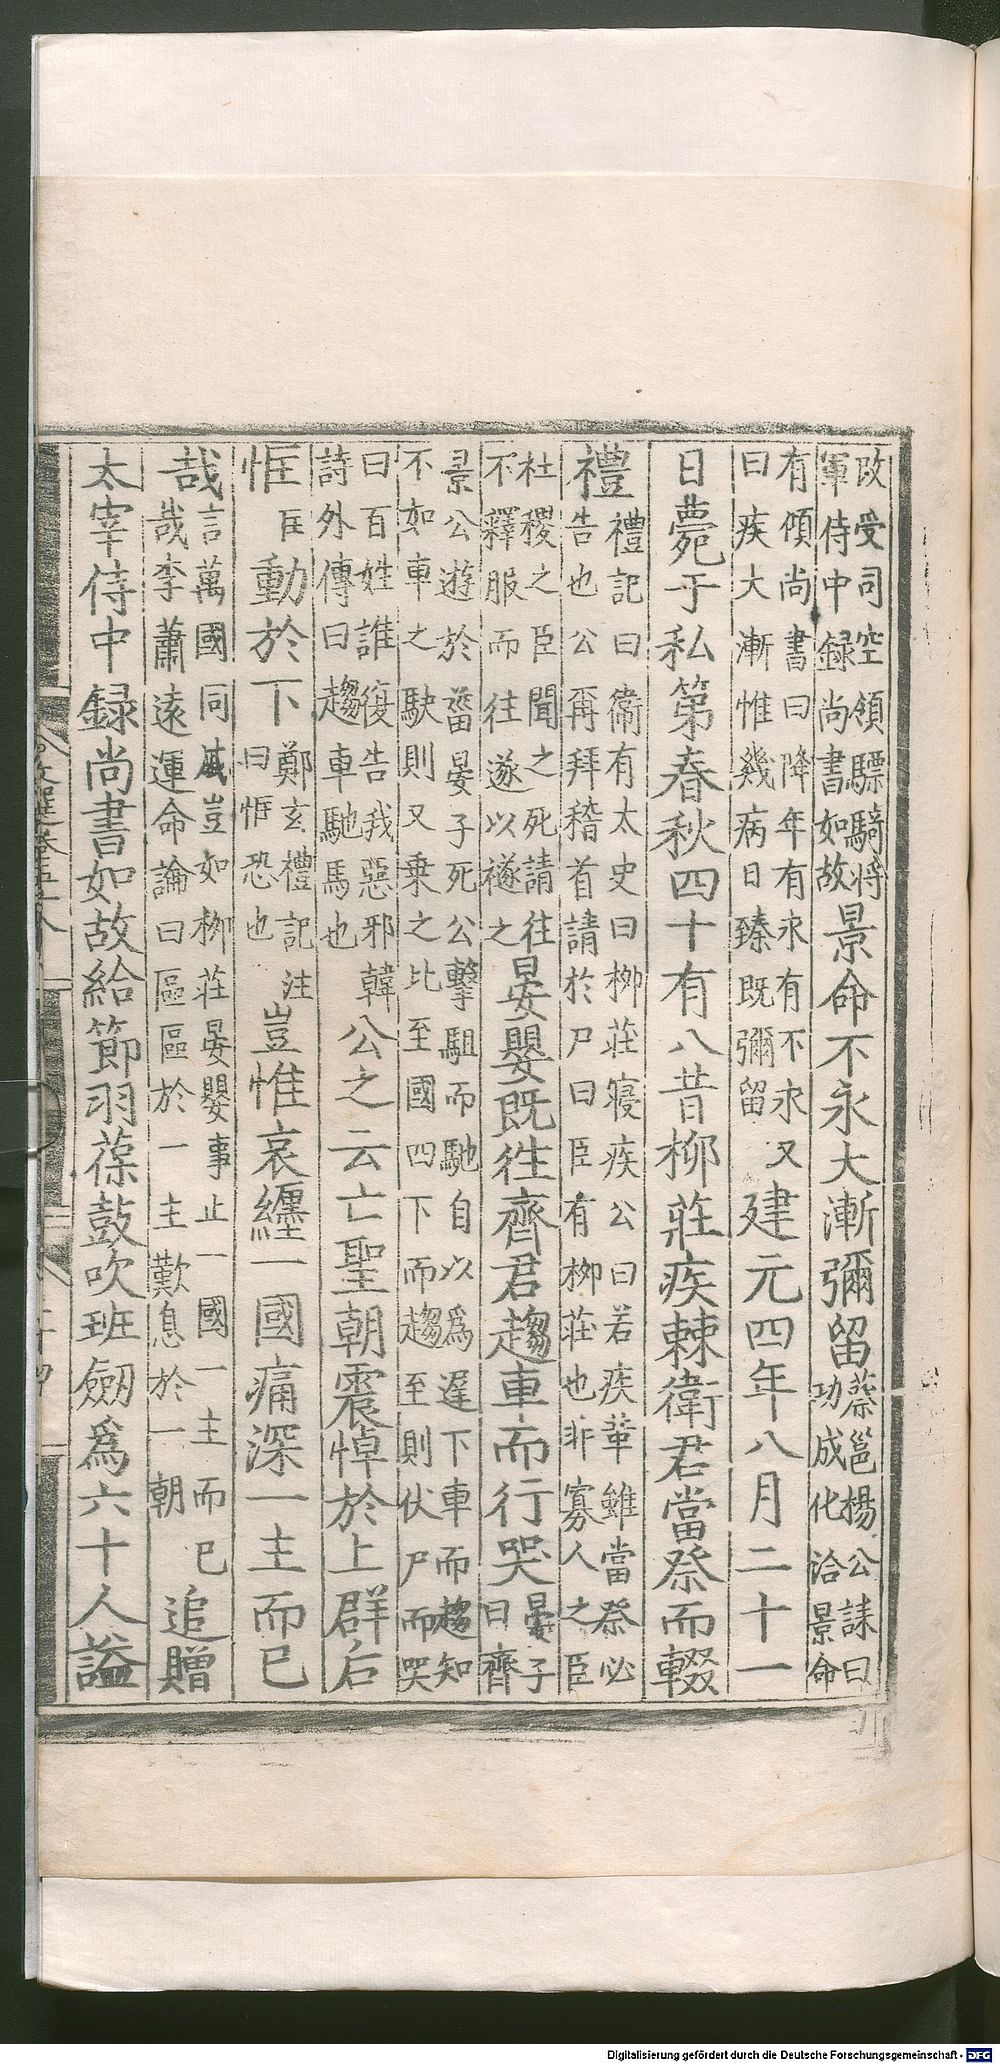 改受司空領驃騎將
軍侍中録尚書如故
景命不永大漸彌留
蔡邕楊公誄曰
功成化洽景命
有傾尚書曰降年有永有不永又
曰疾大漸惟幾病日臻既彌留
建元四年八月二十一
日薨于私第春秋四十有八昔柳莊疾棘衛君當祭而輟
禮
禮記曰衞有太史曰柳莊寢疾公曰若疾革雖當祭必
告也公再拜稽首請於尸曰臣有柳莊也非寡人之臣
杜稷之臣聞之死請往
不釋服而往遂以襚之
晏嬰既往齊君趨車而行哭
晏子
曰齊
景公遊於菑晏子死公擊駔而馳自以爲遲下車而趨知
不如車之駃則又乗之比至國四下而趨至則伏尸而哭
曰百姓誰復告我惡邪韓
詩外傳曰趨車馳馬也
公之云亡聖朝震悼於上群后
恇
匡
動於下
鄭玄禮記注
曰恇恐也
豈惟哀纏一國痛深一主而已
哉
言萬國同戚豈如柳莊晏嬰事止一國一主而已
哉李蕭遠運命論曰區區於一主歎息於一朝
追贈
太宰侍中録尚書如故給節羽葆鼓吹班劔爲六十人謚
Digitalisierung gefördert durch die Deutsche Forschungsgemeinschaft - DFG